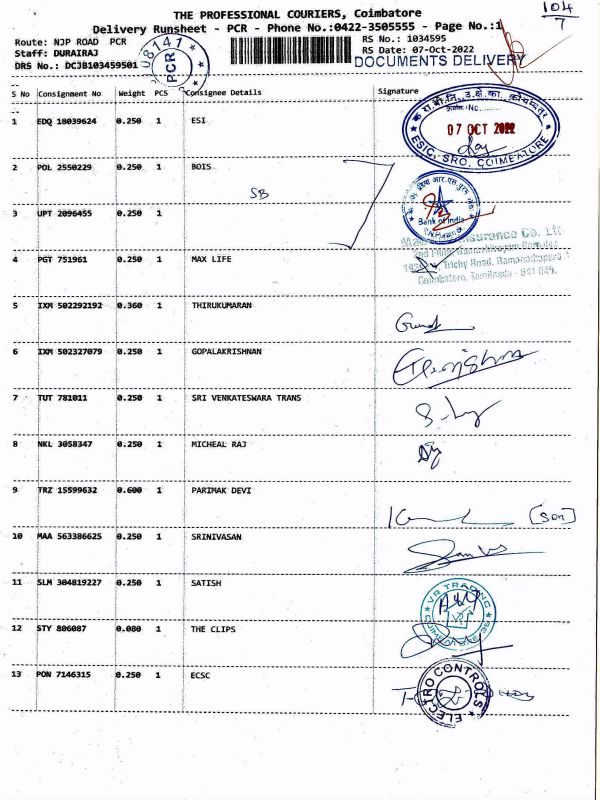 THE PROFESSIONAL COURIERS, Coimbatore
Delivery Runsheet - PCR - Phone No.:0422-3505555 - Page No.:1
104
7
Route: NJP ROAD PCR
RS No.: 1034595
Staff: DURAIRAJ
RS Date: 07-Oct-2022
DRS No.: DCJB103459501
DOCUMENTS DELIVERY
08141
PCR
S No Consignment No Weight PCS Consignee Details Signature
1 EDQ 18039624 0.250 1 ESI
07 OCT 2022
ESIC, SRO, COIMBATORE
2 POL 2550229 0.250 1 BOIS
SB
Bank of India
3 UPT 2096455 0.250 1
4 PGT 751961 0.250 1 MAX LIFE
Insurance Co. Ltd
Trichy Road, Ramanathapuram
Coimbatore, Tamilnadu - 641 045.
5 IXM 502292192 0.360 1 THIRUKUMARAN
6 IXM 502327079 0.250 1 GOPALAKRISHNAN
7 TUT 781011 0.250 1 SRI VENKATESWARA TRANS
8 NKL 3058347 0.250 1 MICHEAL RAJ
9 TRZ 15599632 0.600 1 PARIMAK DEVI
[son]
10 MAA 563386625 0.250 1 SRINIVASAN
11 SLM 304819227 0.250 1 SATISH
VR TRADING
12 STY 806087 0.080 1 THE CLIPS
13 PON 7146315 0.250 1 ECSC
ELECTRO CONTROLS